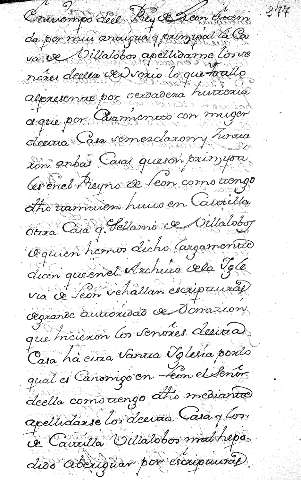 277
do por mui antigua y principal la Ca
sa de Villalobos apellidarme los se
ñores de ella de Osorio lo que hallo
al presente por verdadera historia
es que por Casamiento con muger
de esta Casa se mezclaron y Junta
ron ambas Casas que son primeras
en el Reyno de Leon como tengo
dho tambien huvo en Castilla
otra Casa q. llamó de Villalobos
de quien hemos dicho largamente
dicen que en el Archivo de la Igle
sia de Leon se hallan escripturas
de grande autoridad de Donacion
que hicieron los Señores de esta
Casa hacia Santa Iglesia por lo
qual es Canonigo en Leon el Señor
de ella como tengo dho mediante
apellidarse los de esta Casa y los
de Castilla Villalobos mas he po
dido aberiguar por escripturas